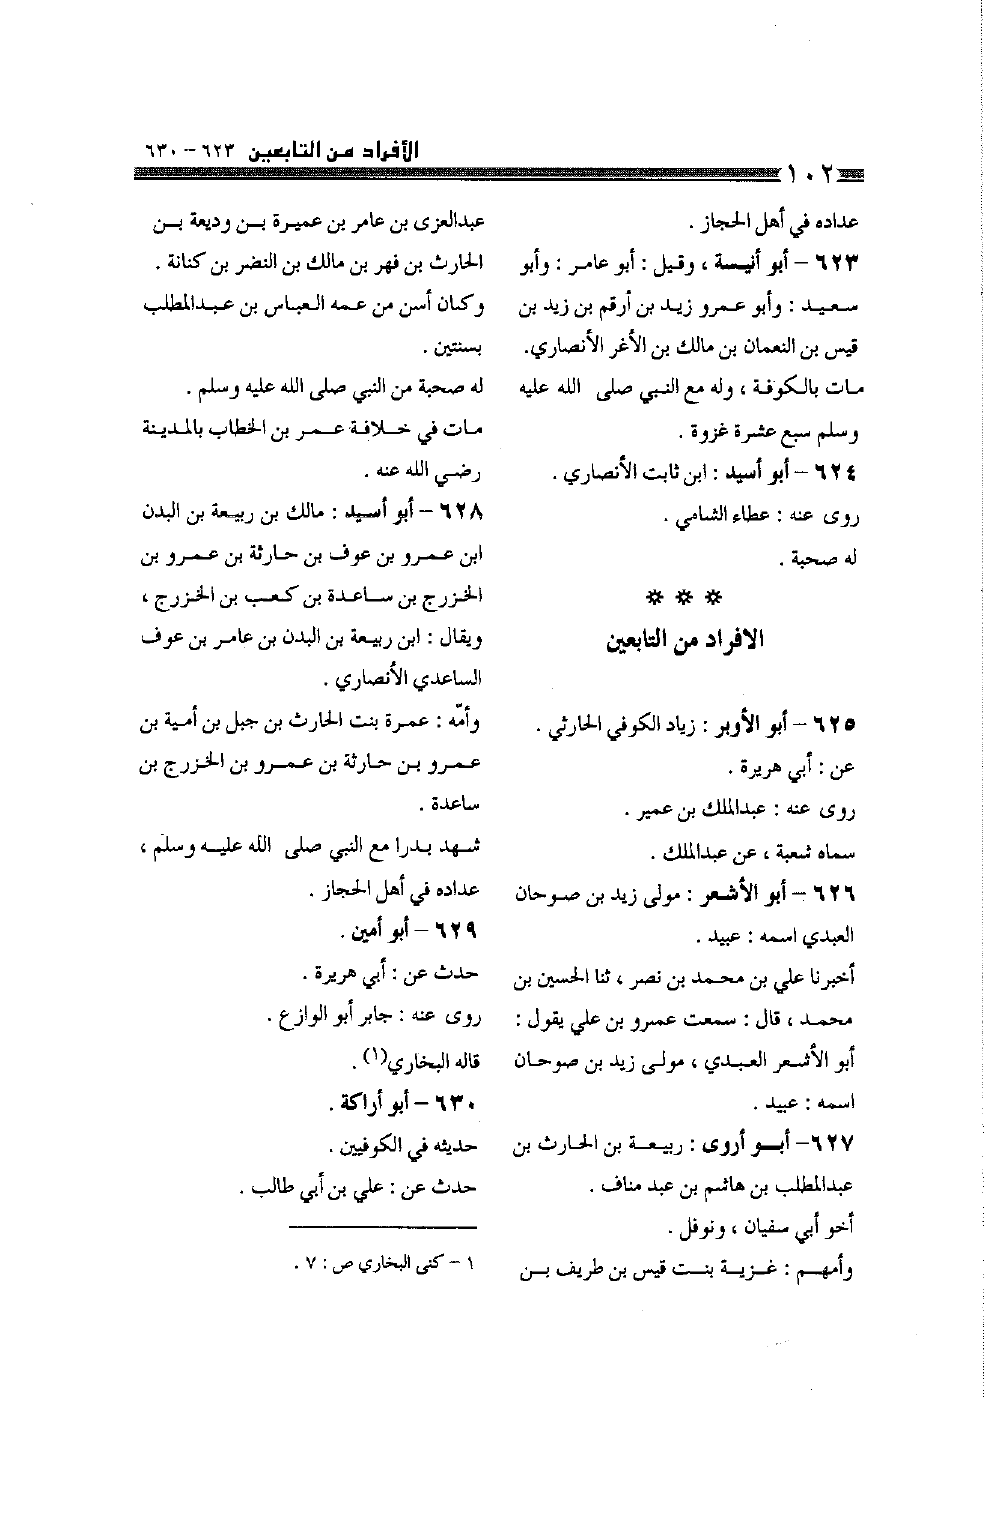 الأفراد من التابعين ٦٢٣ - ٦٣٠
١٠٢
عداده في أهل الحجاز .
٦٢٣ - أبو أنيسة ، وقيل : أبو عامر : وأبو
سعيد : وأبو عمرو زيد بن أرقم بن زيد بن
قيس بن النعمان بن مالك بن الأغر الأنصاري.
مات بالكوفة ، وله مع النبي صلى الله عليه
وسلم سبع عشرة غزوة .
٦٢٤ - أبو أسيد : ابن ثابت الأنصاري .
روى عنه : عطاء الشامي .
له صحبة .
* * *
الافراد من التابعين
٦٢٥ - أبو الأوبر : زياد الكوفي الحارثي .
عن : أبي هريرة .
روى عنه : عبدالملك بن عمير .
سماه شعبة ، عن عبدالملك .
٦٢٦ - أبو الأشعر : مولى زيد بن صوحان
العبدي اسمه : عبيد .
أخبرنا علي بن محمد بن نصر ، ثنا الحسين بن
محمد ، قال : سمعت عمرو بن علي يقول :
أبو الأشعر العبدي ، مولى زيد بن صوحان
اسمه : عبيد .
٦٢٧- أبو أروى : ربيعة بن الحارث بن
عبدالمطلب بن هاشم بن عبد مناف .
أخو أبي سفيان ، ونوفل .
وأمهم : غزية بنت قيس بن طريف بن
عبدالعزى بن عامر بن عميرة بن وديعة بن
الحارث بن فهر بن مالك بن النضر بن كنانة .
وكان أسن من عمه العباس بن عبدالمطلب
بسنتين .
له صحبة من النبي صلى الله عليه وسلم .
مات في خلافة عمر بن الخطاب بالمدينة
رضي الله عنه .
٦٢٨ - أبو أسيد : مالك بن ربيعة بن البدن
ابن عمرو بن عوف بن حارثة بن عمرو بن
الخزرج بن ساعدة بن كعب بن الخزرج ،
ويقال : ابن ربيعة بن البدن بن عامر بن عوف
الساعدي الأنصاري .
وأمّه : عمرة بنت الحارث بن جبل بن أمية بن
عمرو بن حارثة بن عمرو بن الخزرج بن
ساعدة .
شهد بدرا مع النبي صلى الله عليه وسلم ،
عداده في أهل الحجاز .
٦٢٩ - أبو أمين .
حدث عن : أبي هريرة .
روى عنه : جابر أبو الوازع .
قاله البخاري(١) .
٦٣٠ - أبو أراكة .
حديثه في الكوفيين .
حدث عن : علي بن أبي طالب .
١ - كنى البخاري ص : ٧ .